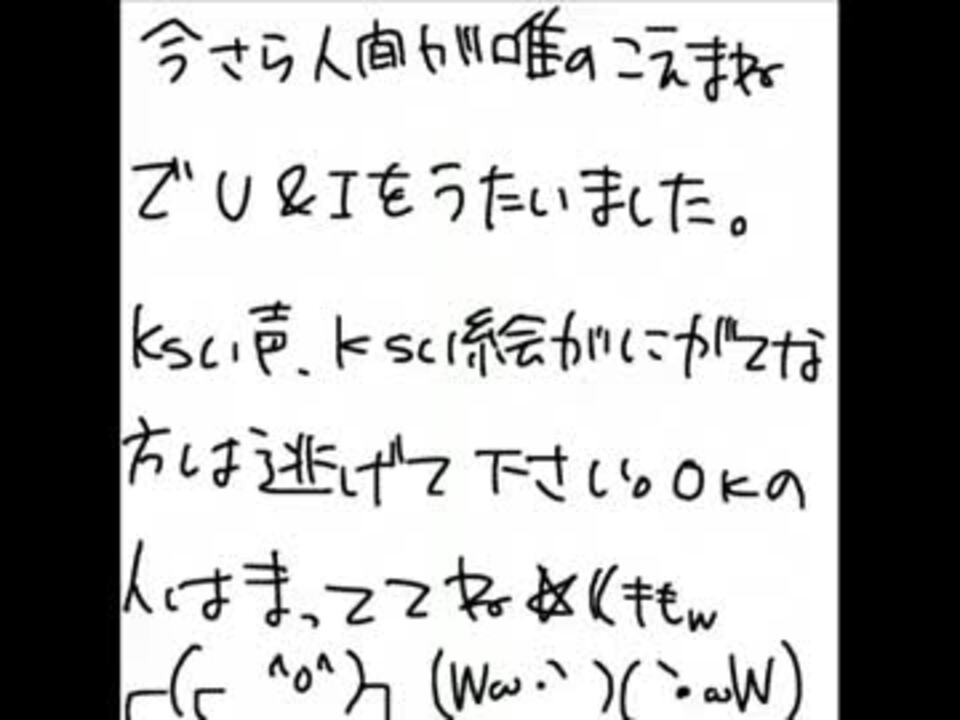 今さら人間が唯のこえまね
でU&Iをうたいました。
kscい声、kscい絵がにがてな
方は逃げて下さい。OKの
人はまっててね☆《キモw
┌(┌ ^o^)┐ (Wω・`)(´・ωW)